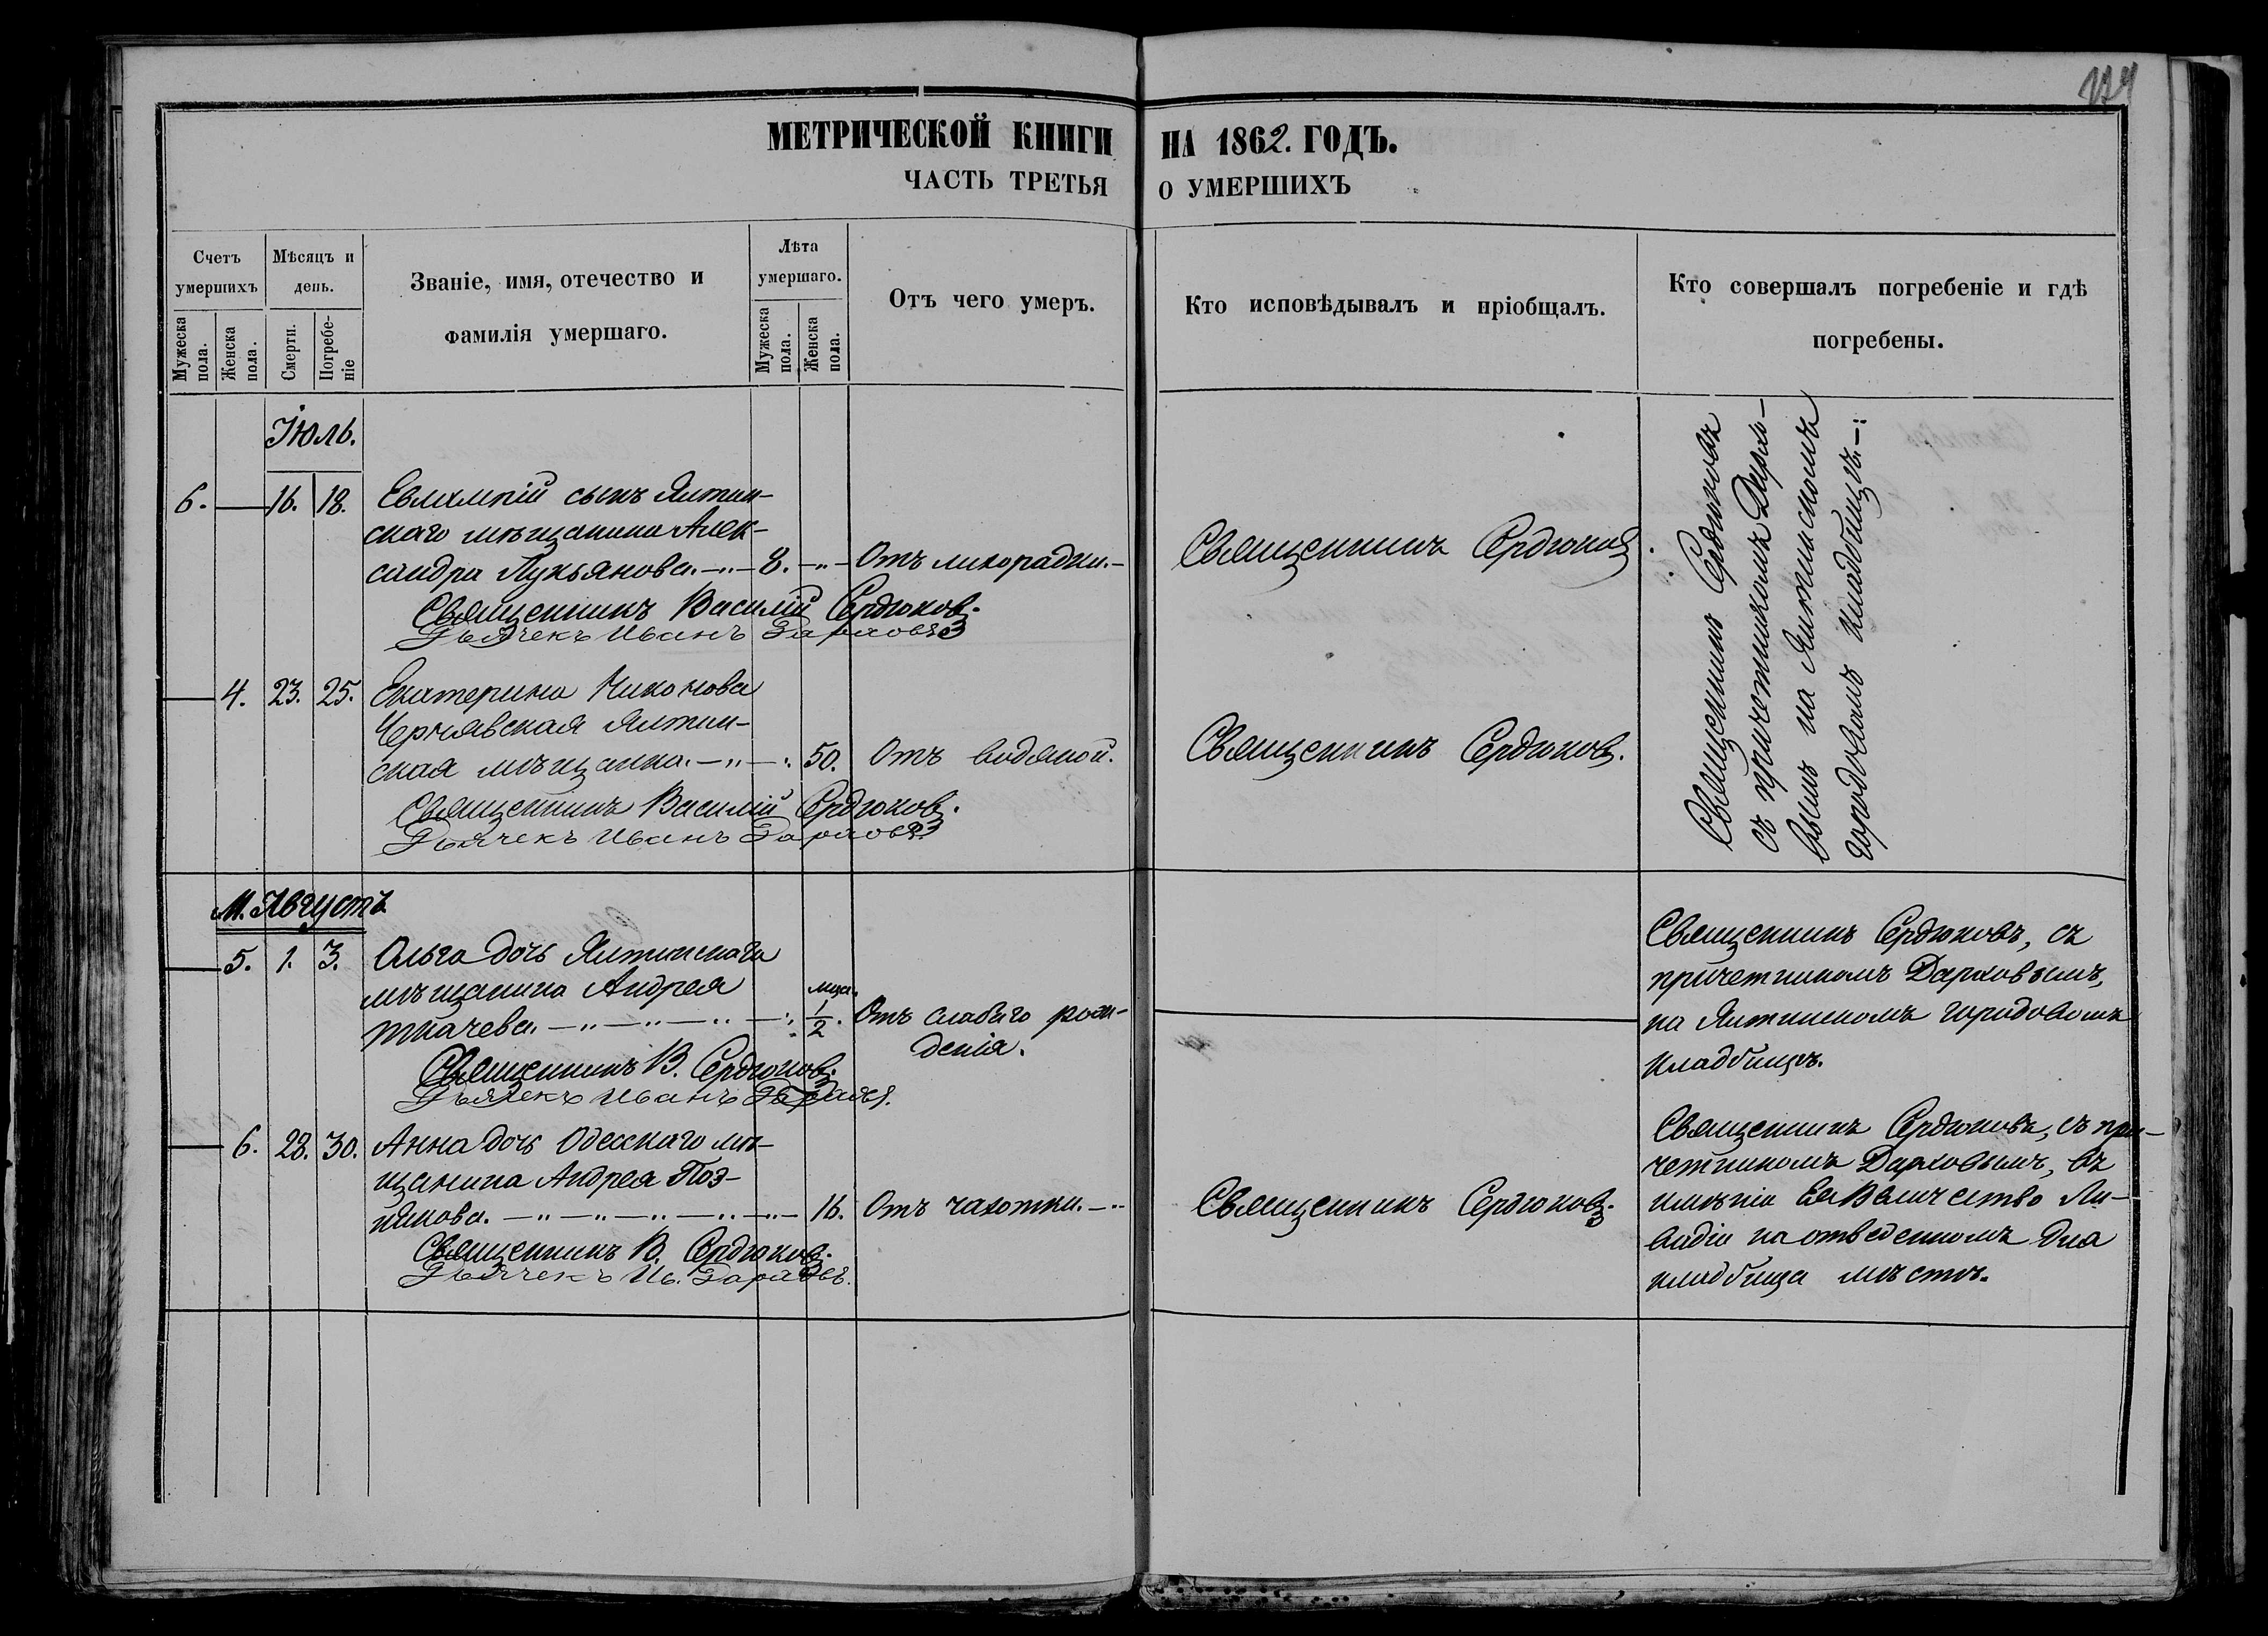 МЕТРИЧЕСКОЙ КНИГИ НА 1862. ГОДЪ.
ЧАСТЬ ТРЕТЬЯ О УМЕРШИХЪ
Счетъ умершихъ
Мужеска пола.
Женска пола.
Мѣсяцъ и день.
Смерти.
Погребеніе
Званіе, имя, отечество и
фамилія умершаго.
Лѣта умершаго.
Мужеска пола.
Женска пола.
Отъ чего умеръ.
Кто исповѣдывалъ и пріобщалъ.
Кто совершалъ погребеніе и гдѣ
погребены.
Іюль.
6. — 16. 18. Евлампій сынъ Ялтин-
скаго мѣщанина Алек-
сандра Лукьянова. 8. Отъ лихорадки. Священникъ Сердюковъ.
Священникъ Василій Сердюковъ.
Дьячекъ Иванъ
Священникъ Сердюковъ
съ причетникомъ Дархо-
вымъ на Ялтинскомъ
городовомъ кладбищѣ.
— 4. 23. 25. Екатерина Никонова
Чернявская Ялтин-
ская мѣщанка. 50. Отъ водяной. Священникъ Сердюковъ.
Священникъ Василій Сердюковъ.
Дьячекъ Иванъ
М. Августъ
— 5. 1. 3. Ольга дочь Ялтинскаго
мѣщанина Андрея мца.
Ткачева. 1/2. Отъ слабаго рож-
денія.
Священникъ В. Сердюковъ.
Дьячекъ Иванъ
Священникъ Сердюковъ, съ
причетникомъ Дарховымъ,
на Ялтинскомъ городовомъ
кладбищѣ.
— 6. 28. 30. Анна дочь Одесскаго мѣ-
щанина Андрея Поз-
някова. 16. Отъ чахотки. Священникъ Сердюковъ.
Священникъ В. Сердюковъ.
Дьячекъ Ив.
Священникъ Сердюковъ, съ при-
четникомъ Дарховымъ, въ
имѣніи Ея Величество Ли-
вадіи на отведенномъ для
кладбища мѣстѣ.